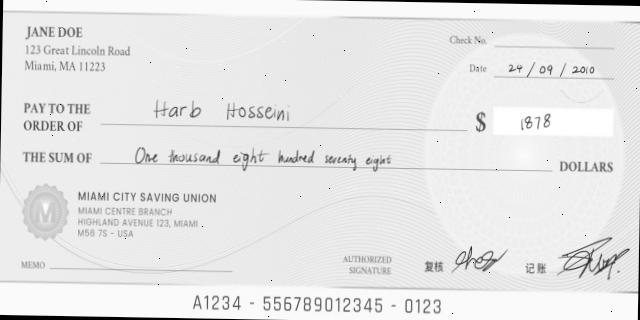 JANE DOE
123 Great Lincoln Road
Miami, MA 11223
Check No.
Date 24 / 09 / 2010
PAY TO THE
ORDER OF Harb Hosseini
$ 1878
THE SUM OF One thousand eight hundred seventy eight DOLLARS
MIAMI CITY SAVING UNION
MIAMI CENTRE BRANCH
HIGHLAND AVENUE 123, MIAMI
M56 7S - USA
M
MEMO
AUTHORIZED
SIGNATURE
复核
记账
A1234 - 556789012345 - 0123